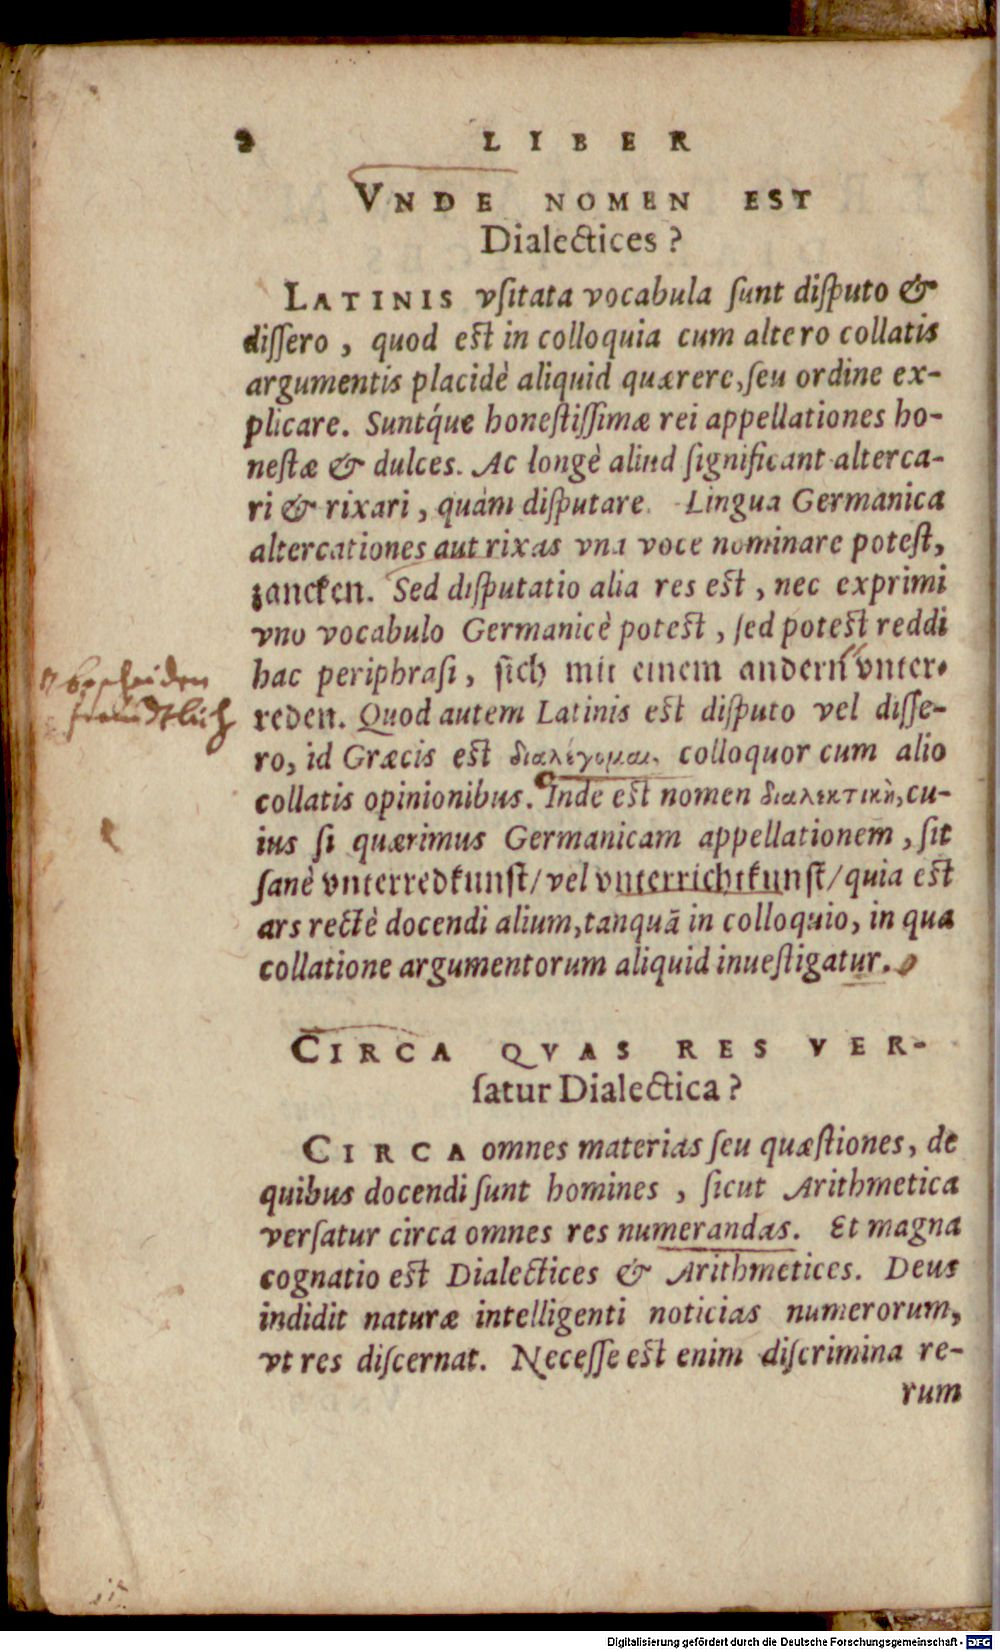 2 LIBER
VNDE NOMEN EST
Dialectices?
LATINIS vſitata vocabula ſunt diſputo &
diſſero, quod est in colloquia cum altero collatis
argumentis placidè aliquid quærere, ſeu ordine ex-
plicare. Suntq́ue honeſtiſſimæ rei appellationes ho-
neſtæ & dulces. Ac longè aliud ſignificant alterca-
ri & rixari, quàm diſputare. Lingua Germanica
altercationes aut rixas vna voce nominare poteſt,
zancken. Sed diſputatio alia res est, nec exprimi
vno vocabulo Germanicè potest, ſed potest reddi
hac periphraſi, ſich mit einem andern vnter-
reden. Quod autem Latinis est diſputo vel diſſe-
ro, id Græcis est διαλέγομαι, colloquor cum alio
collatis opinionibus. Inde est nomen διαλεκτικὴ, cu-
ius ſi quærimus Germanicam appellationem, ſit
ſanè vnterredkunſt/ vel vnterrichtkunſt/ quia est
ars rectè docendi alium, tanquã in colloquio, in qua
collatione argumentorum aliquid inueſtigatur.
bescheiden
freundtlich
CIRCA QVAS RES VER-
ſatur Dialectica?
CIRCA omnes materias ſeu quæſtiones, de
quibus docendi ſunt homines, ſicut Arithmetica
verſatur circa omnes res numerandas. Et magna
cognatio est Dialectices & Arithmetices. Deus
indidit naturæ intelligenti noticias numerorum,
vt res diſcernat. Neceſſe est enim diſcrimina re-
rum
Digitalisierung gefördert durch die Deutsche Forschungsgemeinschaft - DFG